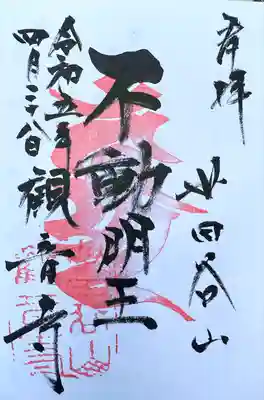 奉拝
世田谷山
不動明王
観音寺
令和五年
四月二十八日